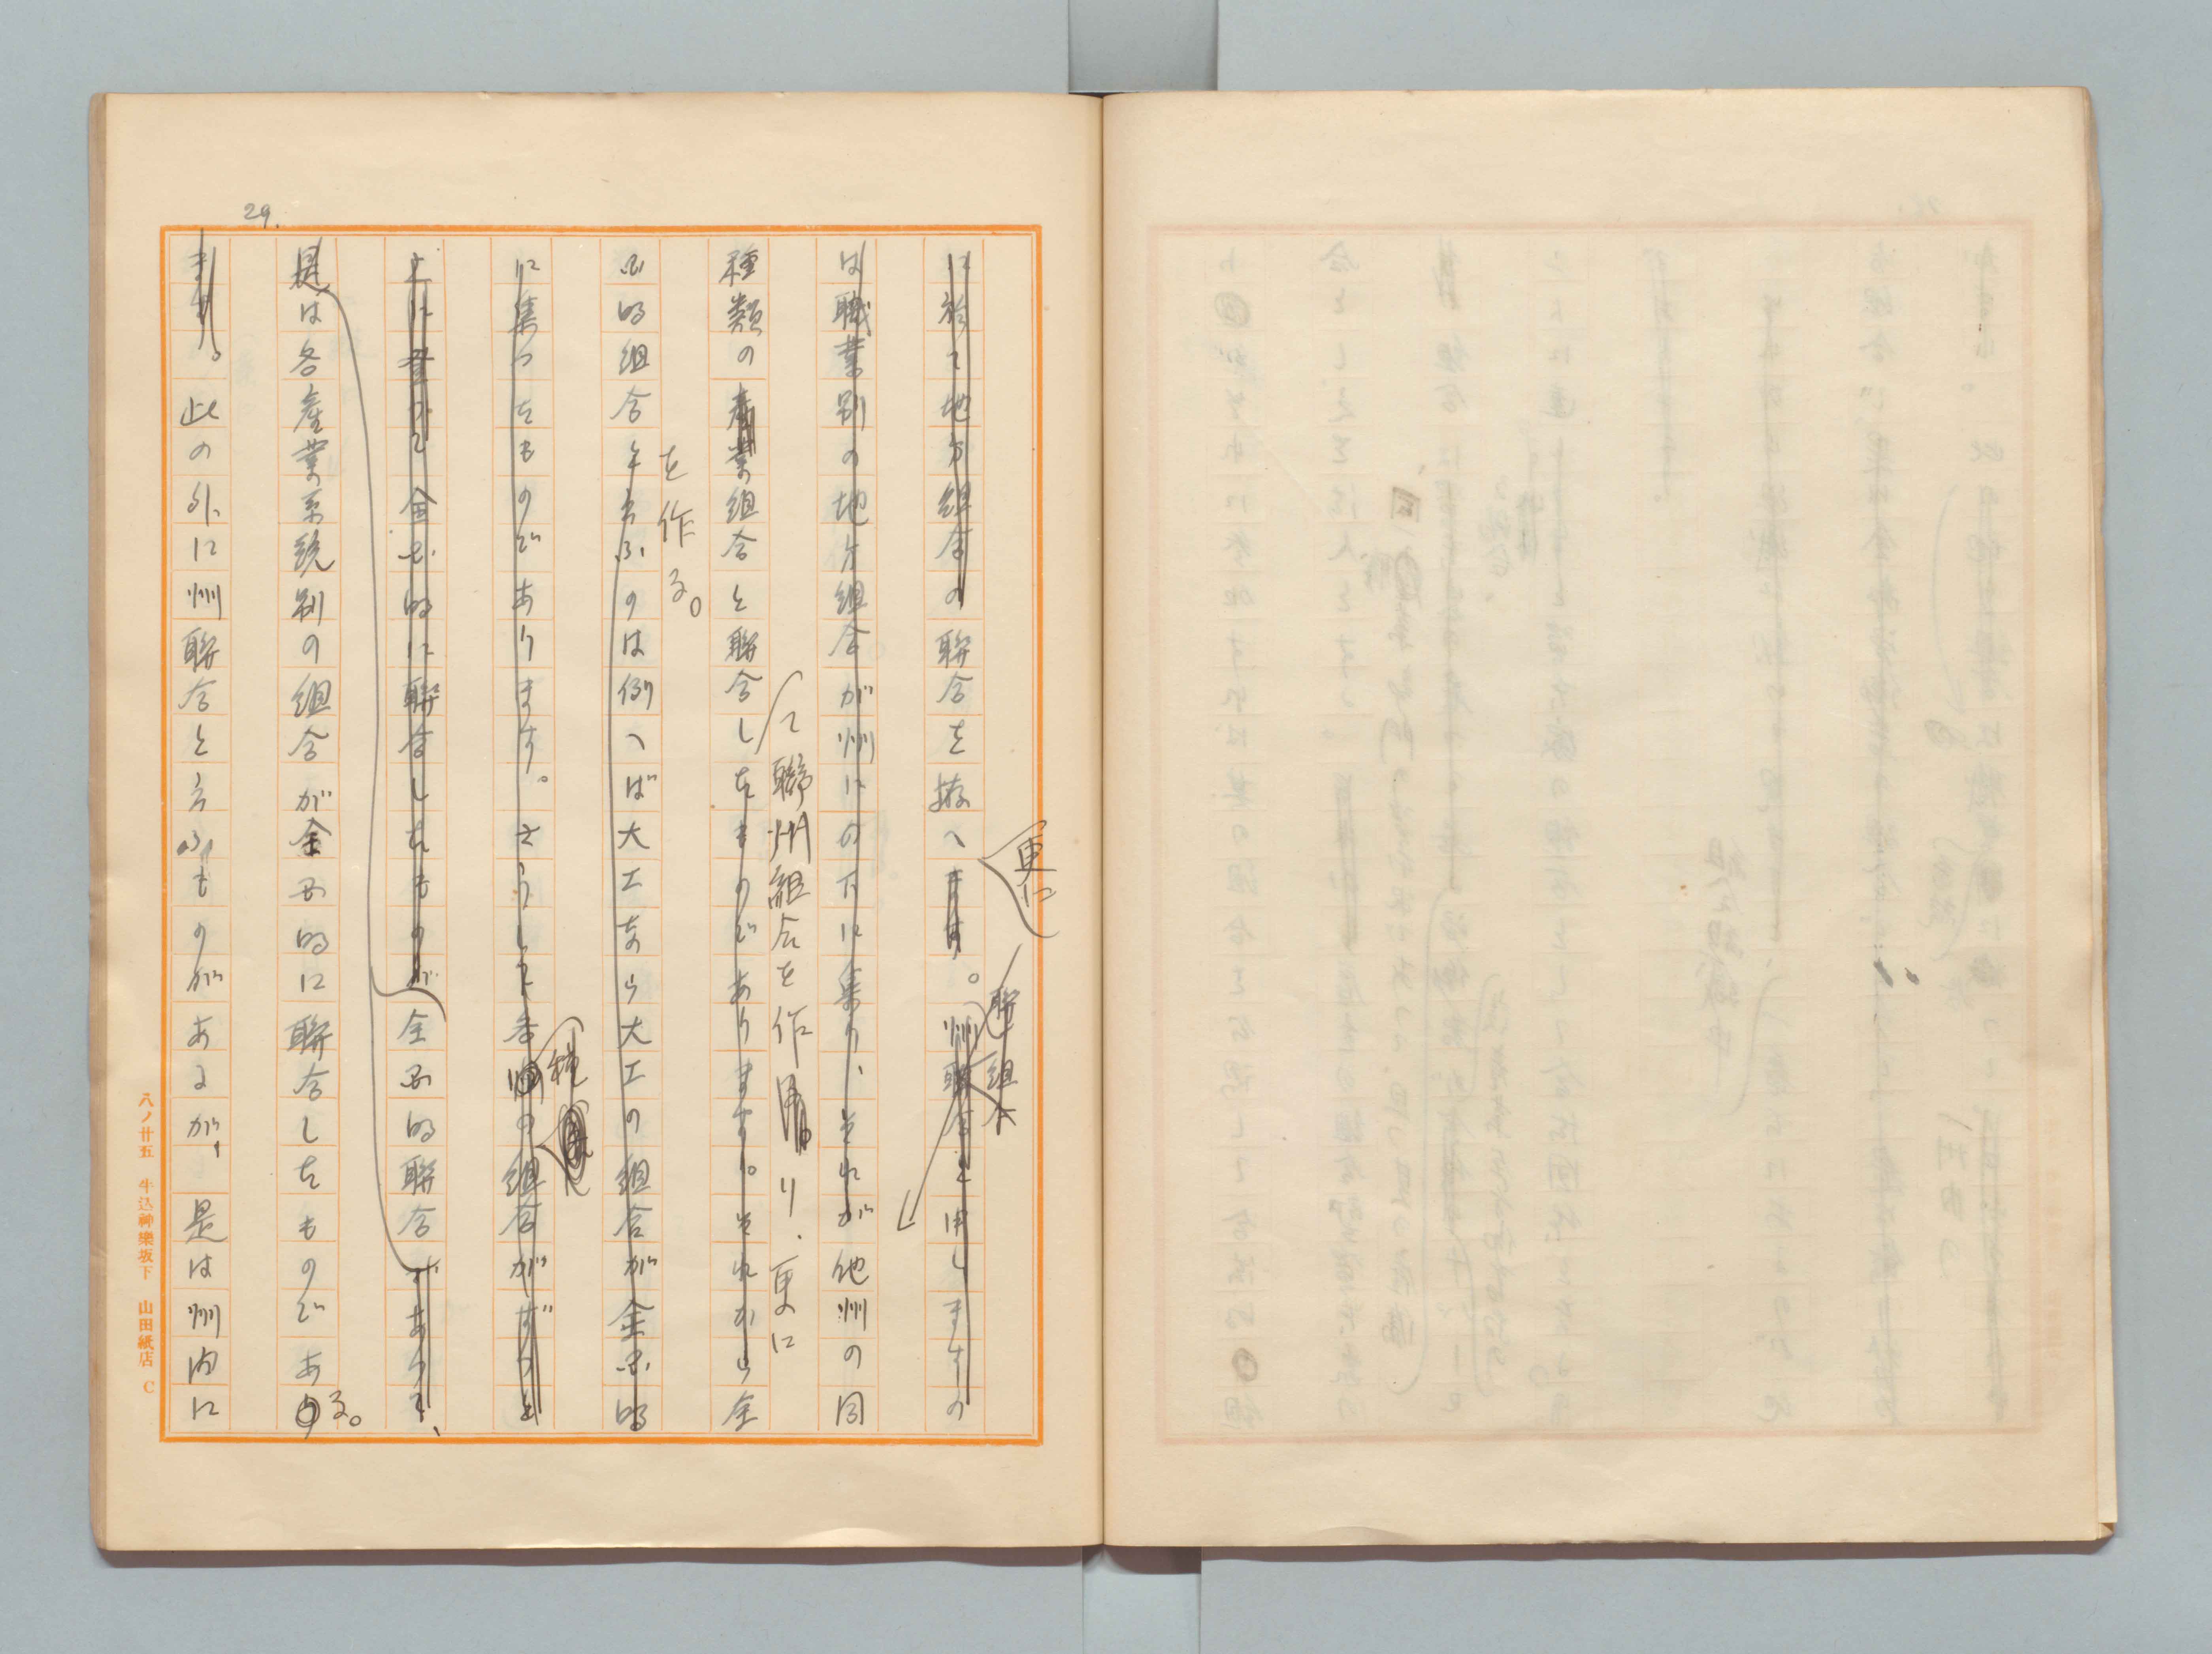 29.
に於て地方組合の聯合を拵へます。州聯合と申しますの
更に
聯
組
は職業別の地方組合が州にの下に集り、それが他州の同
て聯州組合を作り、更に
種類の産業組合と聯合したものであります。それから全
を作る。
国的組合と云ふのは例へば大工なら大工の組合が全国的
に集つたものであります。さうして各州の組合がずつと
種
上に登つて全国的に聯合したものが全国的聯合であります、
是は各産業系統別の組合が全国的に聯合したものである。
ます。此の外に州聯合と云ふものがあるが、是は州内に
八ノ廿五 牛込神樂坂下 山田紙店 C